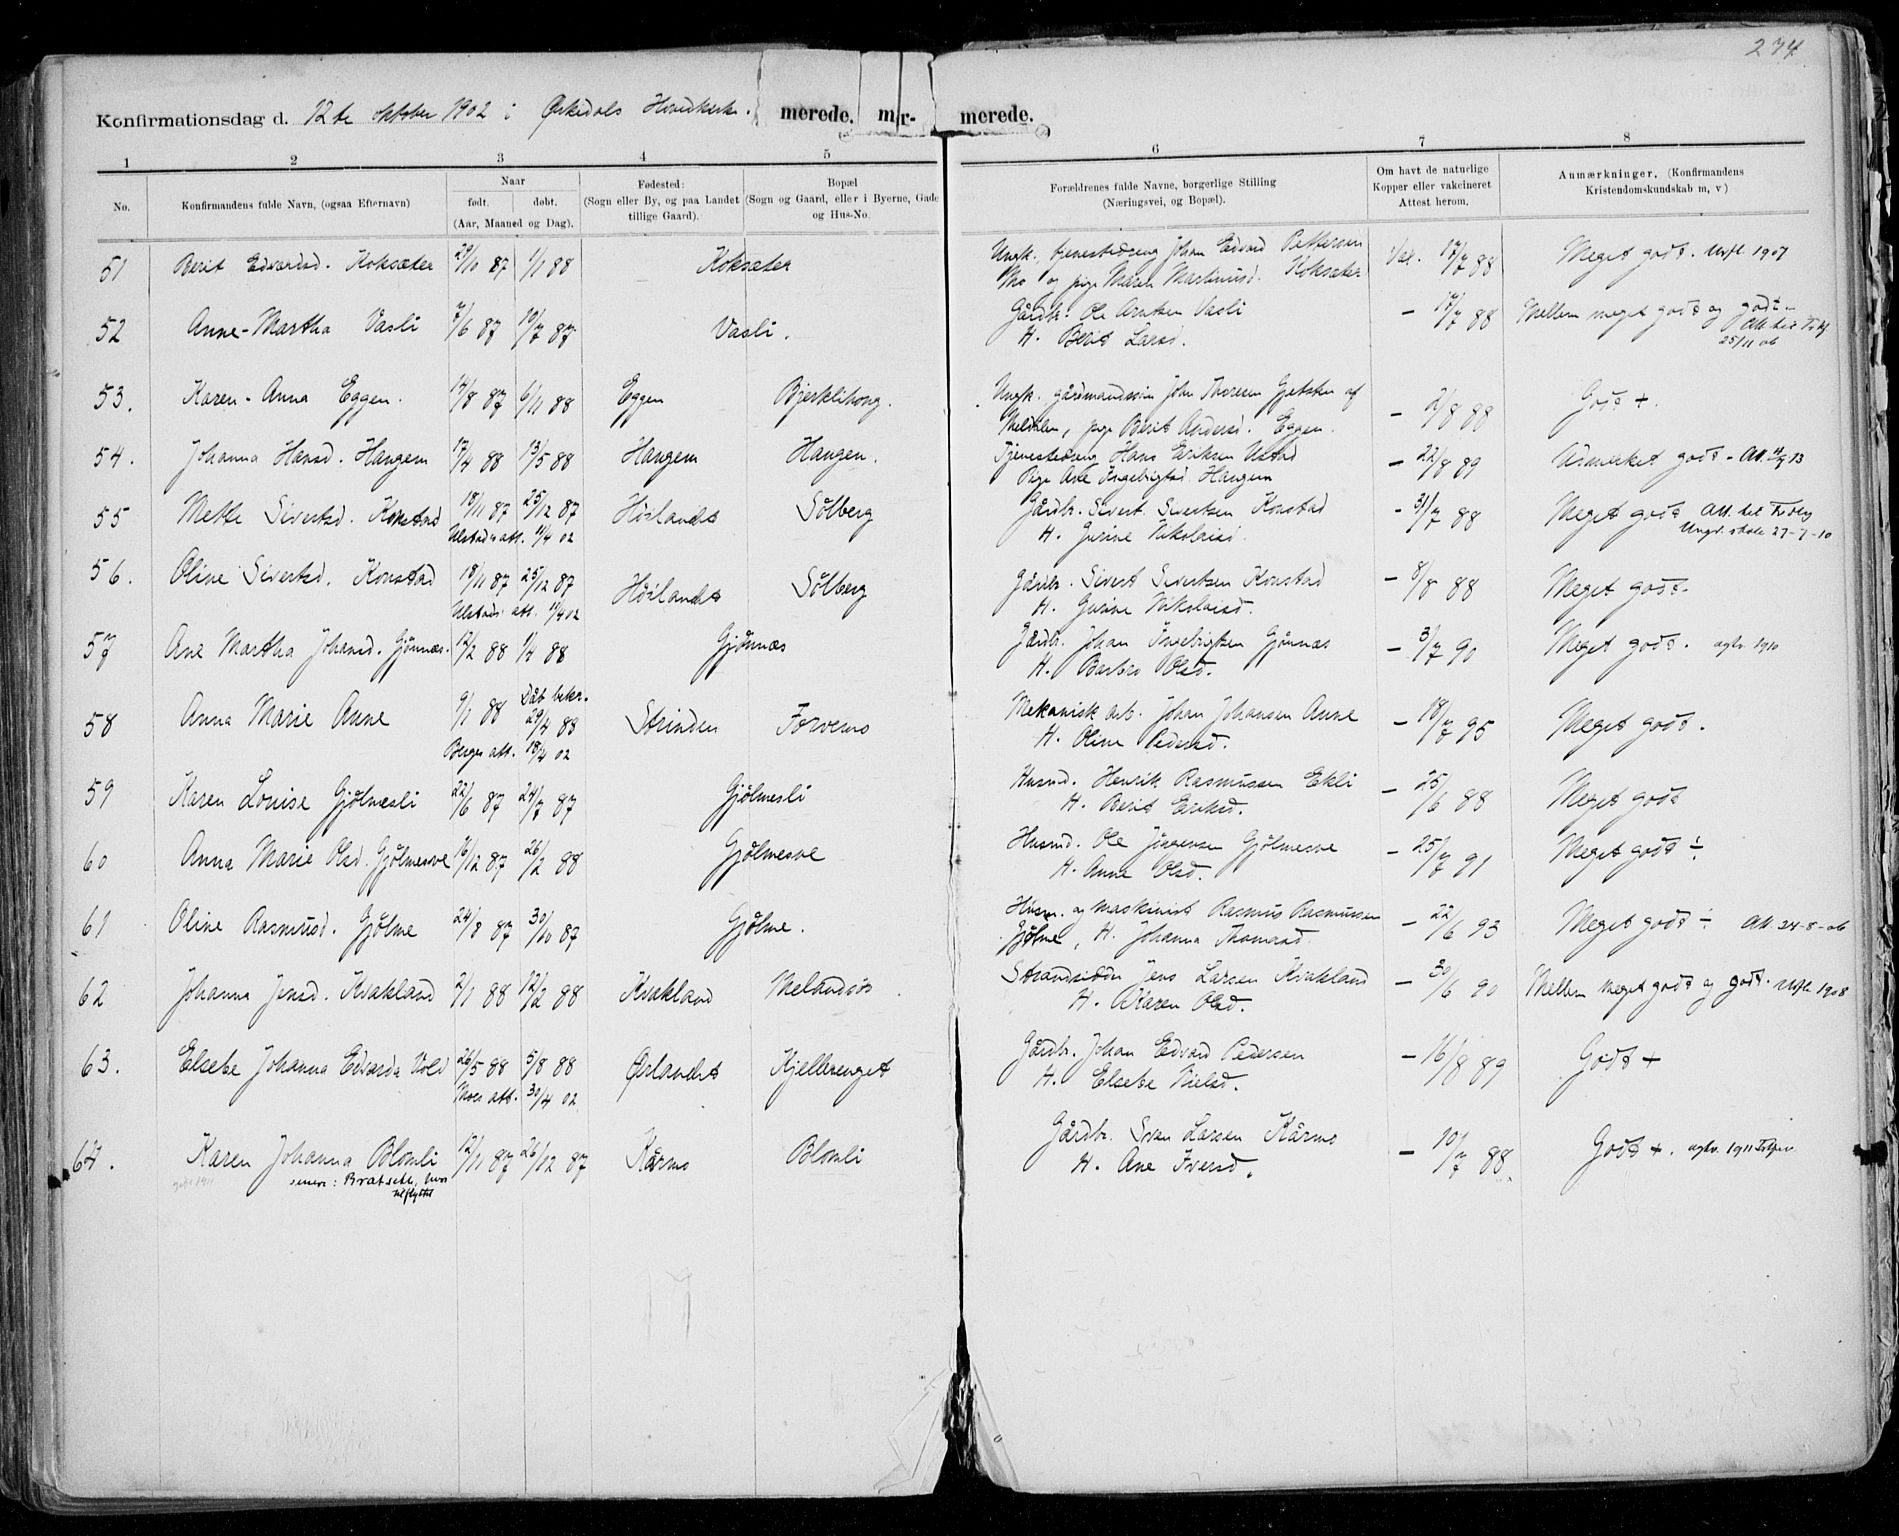 274
Konfirmationsdag d. 12te oktober 1902 i Ørkedals Hovedkirke. merede. mr- merede.
1 2 3 4 5 6 7 8
No. Konfirmandens fulde Navn, (ogsaa Efternavn) Naar født. døbt. (Aar, Maaned og Dag). Fødested: (Sogn eller By, og paa Landet tillige Gaard). Bopæl (Sogn og Gaard, eller i Byerne, Gade og Hus-No. Forældrenes fulde Navne, borgerlige Stilling (Næringsvei, og Bopæl). Om havt de naturlige Kopper eller vakcineret Attest herom. Anmærkninger. (Konfirmandens Kristendomskundskab m, v)
51 Berit Edvardsd. Koksæter 29/10 87 1/1 88 Koksæter Ungk. tjenestedreng Johan Edvard Pettersen Vac. 17/7 88 Meget godt. Udfl. 1907
Mo og pige Maren Martinusd. Koksæter
52 Anne-Martha Vasli 7/6 87 10/7 87 Vasli. Gårdbr. Ole Arntsen Vasli - 17/7 88 Mellem meget godt og godt -
H. Berit Larsd. 25/11 06
53. Karen-Anna Eggen. 14/8 87 6/11 88 Eggen Bjerklihong. Ungk. gårdmandssøn John Thoresen af - 2/8 88 Godt +.
Meldalen, pige Berit Andersd. Eggen.
54. Johanna Hansd. Haugen 17/4 88 13/5 88 Haugen Haugen. Tjenestedreng Hans Eriksen Ustad - 22/8 89 Udmerket godt - Att.
Pige Ane Ingebrigtsd. Haugen
55 Mette Sivertsd. Konstad 18/11 87 25/12 87 Høilandet Solberg Gårdbr. Sivert Sivertsen Konstad - 31/7 88 Meget godt Att. til
Ulstads att. 11/4 02 H. Gurine Nikolaisd. Ungd. skole 27-7-10
56. Oline Sivertsd. Konstad 18/11 87 25/12 87 Høilandet Solberg Gårdbr. Sivert Sivertsen Konstad - 8/8 88 Meget godt.
Ulstads att. 11/4 02 H. Gurine Nikolaisd.
57 Ane Martha Johansd. Gjønnæs. 12/2 88 1/4 88 Gjønnæs Gårdbr. Johan Ingebrigtsen Gjønnæs - 3/7 90 Meget godt. agtv. 1910
H. Barbro Olsd.
58 Anna Marie Anne 9/1 88 Dåb bekr. 29/4 88 Strinden Forvemo Mekanisk arb. Johan Johansen Anne - 18/7 95 Meget godt.
Berges att. 18/4 02 H. Oline Pedersd.
59 Karen Louise Gjølmesli 22/6 87 24/7 87 Gjølmesli Husmd. Henrik Rasmussen Ekli - 25/6 88 Meget godt
H. Berit Eriksd.
60 Anna Marie Olsd. Gjølmesve 16/12 87 26/2 88 Gjølmesve Husmd. Ole Jørgensen Gjølmesve - 25/7 91 Meget godt ÷
H. Anne Olsd.
61 Oline Rasmusd. Gjølme 24/8 87 30/10 87 Gjølme. Husm. og maskinist Rasmus Rasmussen - 22/6 93 Meget godt ÷ Att 24-8-06
Gjølme, H. Johanna Thomasd.
62 Johanna Jensd. Kvakland 2/1 88 12/2 88 Kvakland Melandsøi Strandsidder Jens Larsen Kvakland - 30/6 90 Mellem meget godt og godt. Udfl. 1908
H. Karen Olsd.
63. Elsebe Johanna Edvarda Vold 26/5 88 5/8 88 Ørlandet Kjellerenget Gårdbr. Johan Edvard Pedersen - 16/8 89 Godt +
Moes att. 30/4 02 H. Elsebe Nielsd.
64. Karen Johanna Blomli 12/11 87 26/12 87 Kårmo Blomli Gårdbr. Sven Larsen Kårmo - 10/7 88. Godt +. agtv. 1911
senere: Bratset, hvor H. Ane Iversd.
tilflyttet